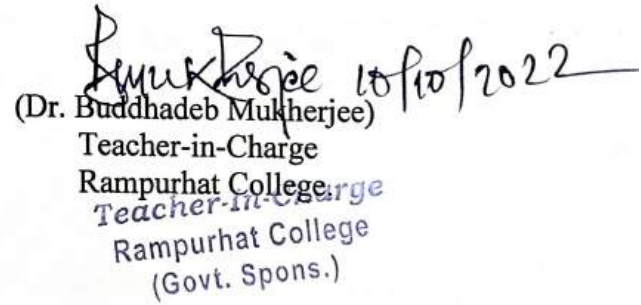 BMukherjee 10/10/2022
(Dr. Buddhadeb Mukherjee)
Teacher-in-Charge
Rampurhat College.
Teacher-In-Charge
Rampurhat College
(Govt. Spons.)